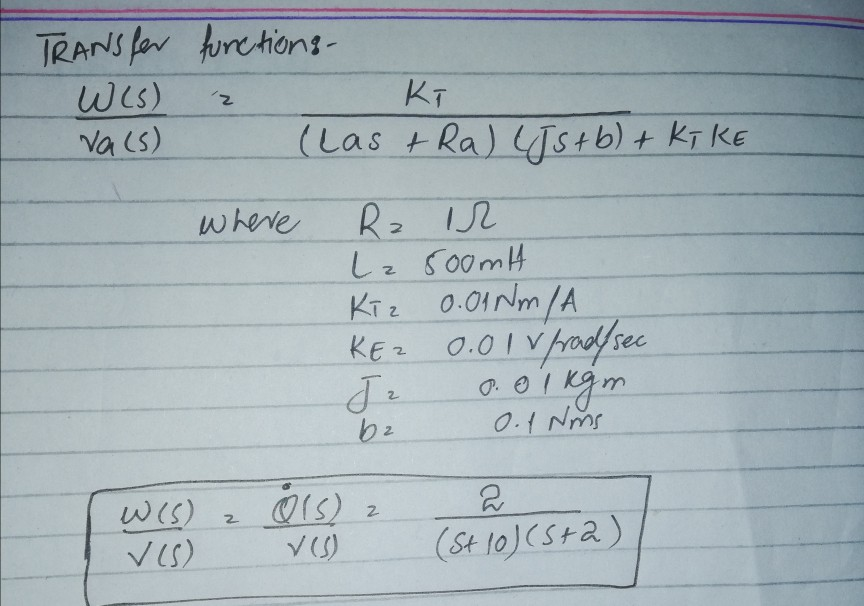 TRANSfer functions-
W(s)/Va(s) = KT/((Las + Ra) (Js+b) + KT KE)
where R= 1Ω
L= 500mH
KT= 0.01Nm/A
KE= 0.01 v/rad/sec
J= 0.01 kgm
b= 0.1 Nms
W(s)/V(s) = θ̇(s)/V(s) = 2/((s+10)(s+2))